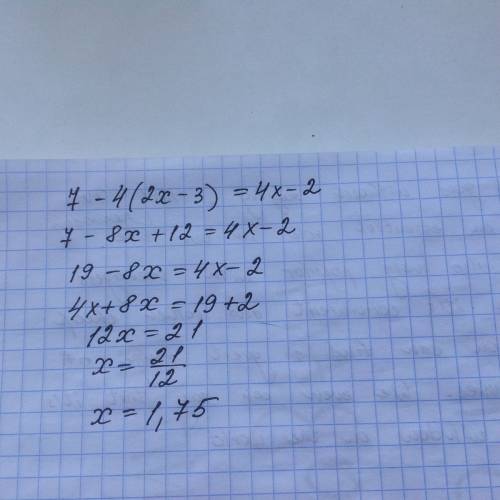 7 - 4(2x - 3) = 4x - 2
7 - 8x + 12 = 4x - 2
19 - 8x = 4x - 2
4x + 8x = 19 + 2
12x = 21
x = 21/12
x = 1,75